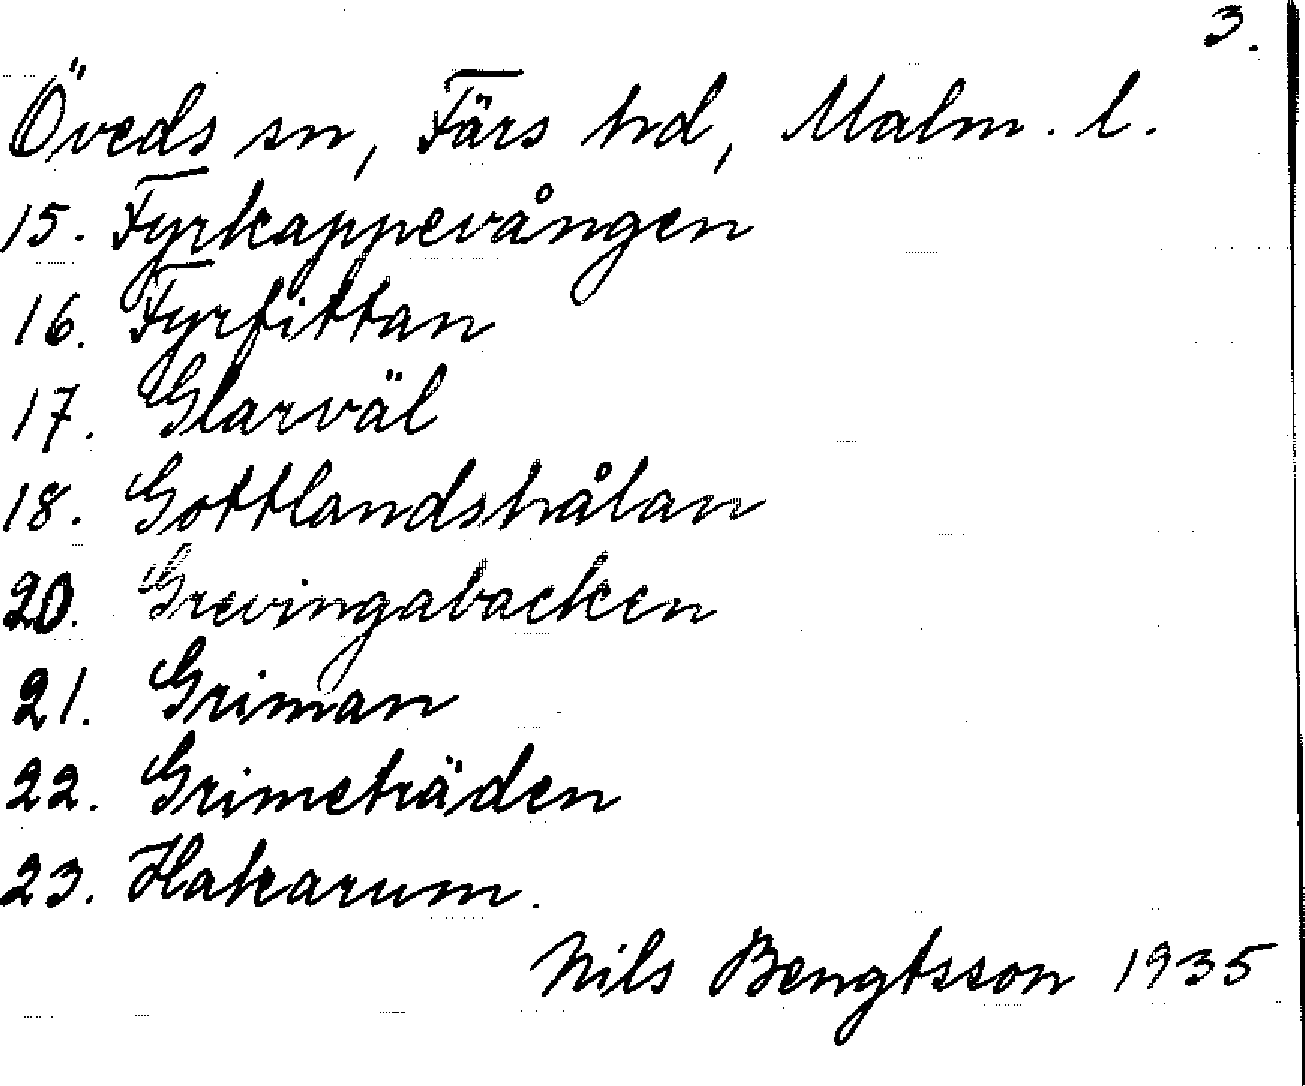 3.
Öveds sn, Färs hd, Malm. l.
15. Fyrkappevången
16. Fyrfittan
17. Glarväl
18. Gottlandshålan
20. Grevingabacken
21. Griman
22. Grimeträden
23. Hakarum.
Nils Bengtsson 1935